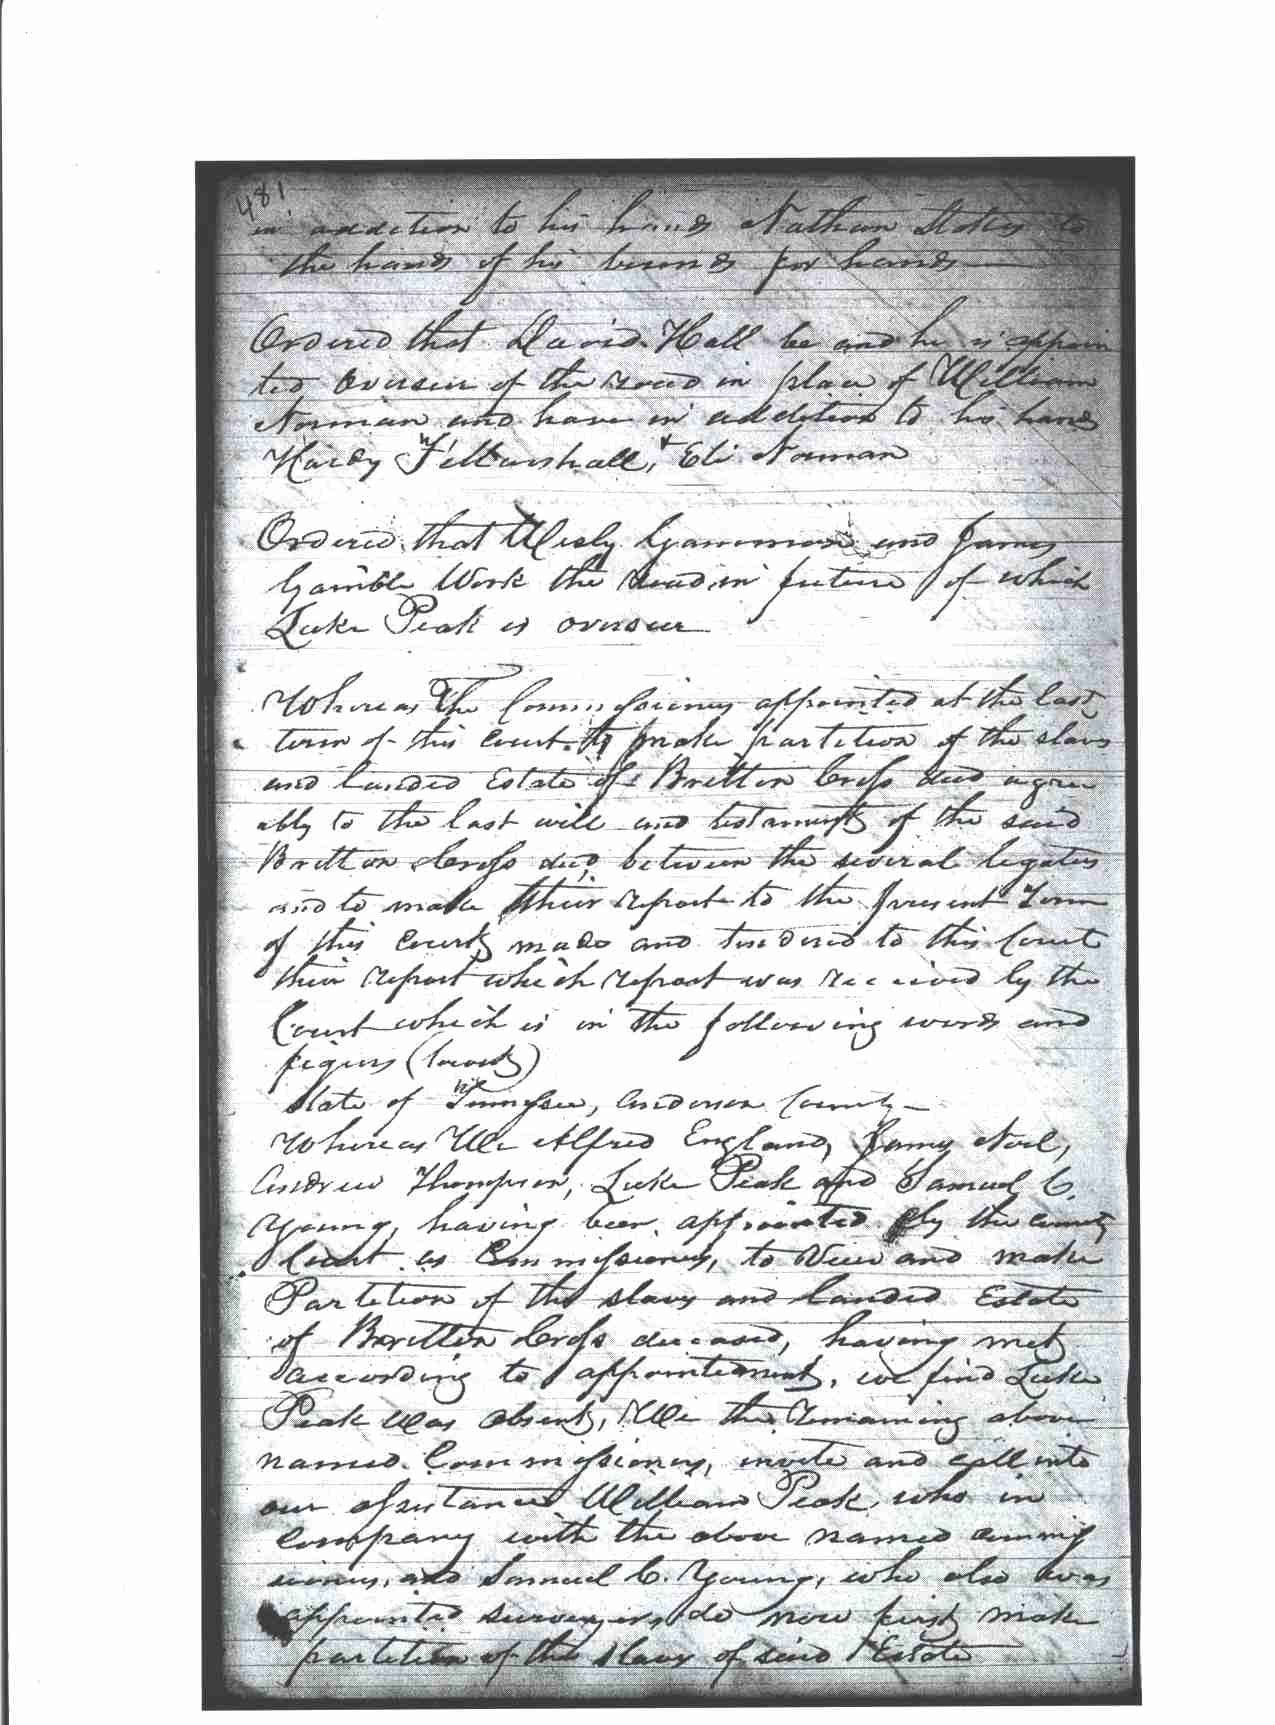 481
in addition to his hands Nathan Stokes to
the hands of his bounds for hands
Ordered that David Hall be and he is appoin
ted Overseer of the road in place of William
Norman and have in addition to his hands
Hardy & Eli Norman
Ordered that Wesly Gammon and James
Gamble Work the road in future of which
Luke Peak is overseer
Whereas The Commissioners appointed at the last
term of this Court to make partition of the slaves
and landed Estate of Britton Cross decd agree
ably to the last will and testament of the said
Britton Cross decd between the several legatees
and to make their report to the present Term
of this Court, made and tendered to this Court
their report which report was received by the
Court which is in the following words and
figurs (towit)
State of Tennessee, Anderson County —
Whereas We Alfred England, James Noel,
Andrew Thompson, Luke Peak and Samuel C.
Young, having been appointed by the county
Court as Commissioners, to View and make
Partition of the slaves and landed Estate
of Britton Cross deceased, having met
according to appointment, we find Luke
Peak was absent, We the remaining above
named Commissioners, invite and call into
our assistance William Peak, who in
company with the above named commis
sioners, and Samuel C. Young, who also was
appointed surveyor, do now first make
partition of the slaves of said Estate